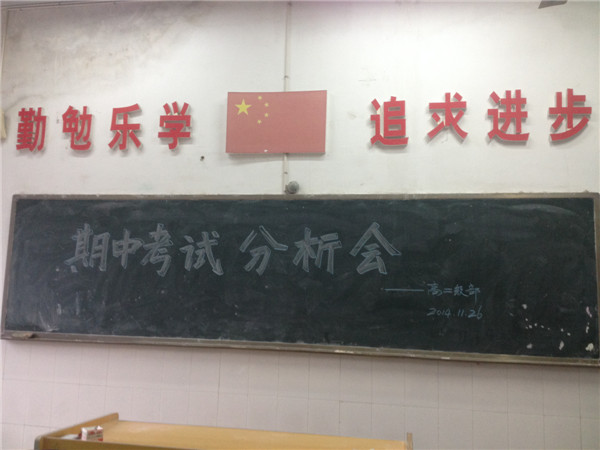 勤勉乐学 追求进步
期中考试分析会
——高二级部
2014.11.26